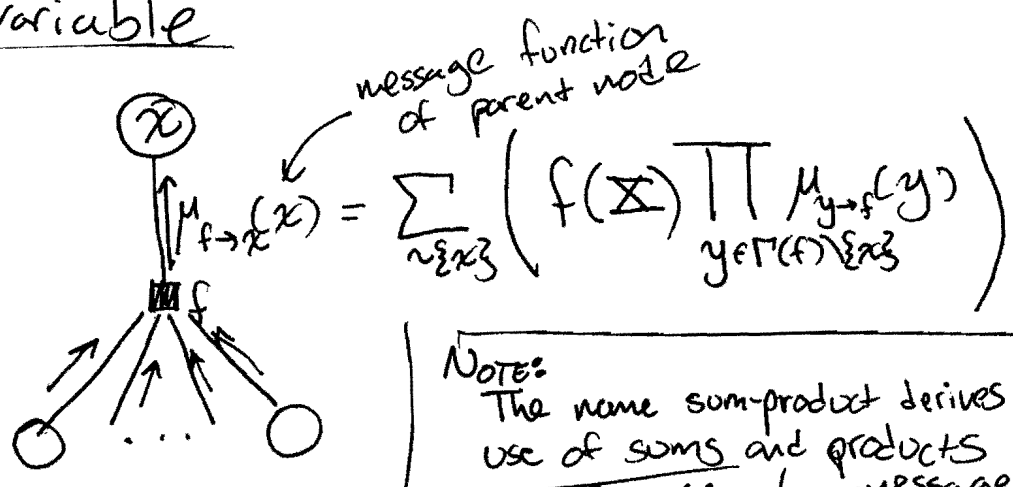 variable
message function
of parent node
x
μ_{f→x}(x) = ∑_{~{x}} ( f(X) ∏_{y∈Γ(f)\{x}} μ_{y→f}(y) )
f
...
NOTE:
The name sum-product derives
use of sums and products
message